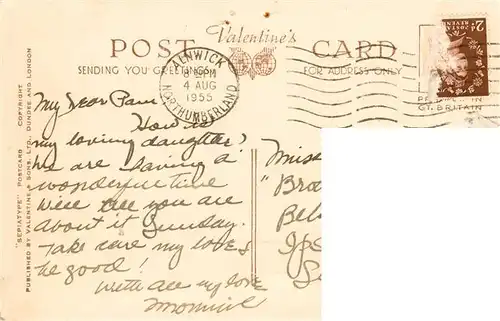 Valentine's
POST CARD
SENDING YOU GREETINGS
FOR ADDRESS ONLY
ALNWICK
PM
4 AUG
1955
NORTHUMBERLAND
GT. BRITAIN
COPYRIGHT
"SEPIATYPE" POSTCARD
PUBLISHED BY VALENTINE & SONS, LTD., DUNDEE AND LONDON
My Dear Pam
How is
my loving daughter?
We are having a
wonderful time
will tell you are
about it Sunday.
Take care my love &
be good!
With all my love
Mommie
Miss